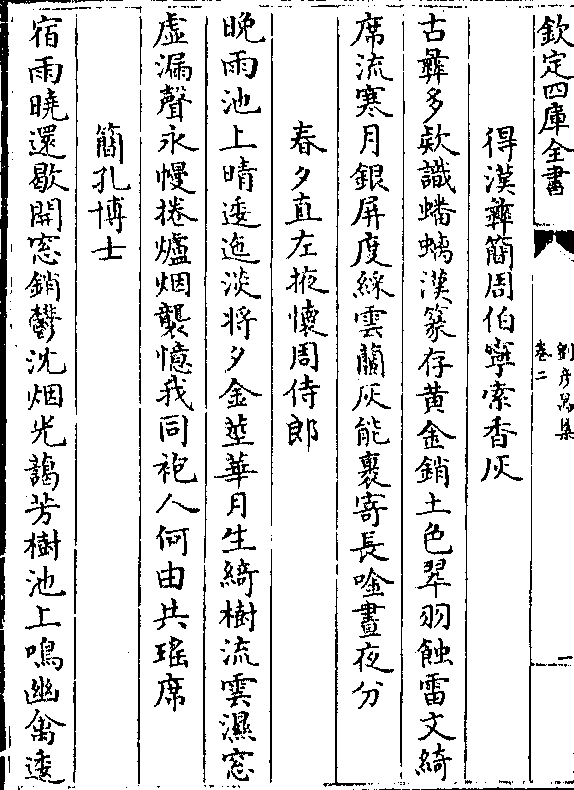 欽定四庫全書
劉彦昺集
卷二
一
得漢彝簡周伯寧索香灰
古彝多欵識蟠螭漢篆存黄金銷土色翠羽蝕雷文綺
席流寒月銀屏度綵雲蘭灰能裹寄長唫晝夜分
春夕直左掖懐周侍郎
晚雨池上晴逶迤淡将夕金莖華月生綺樹流雲濕窓
虚漏聲永幔捲爐烟襲憶我同袍人何由共瑤席
簡孔博士
宿雨曉還歇開窓銷鬱沈烟光藹芳樹池上鳴幽禽逶